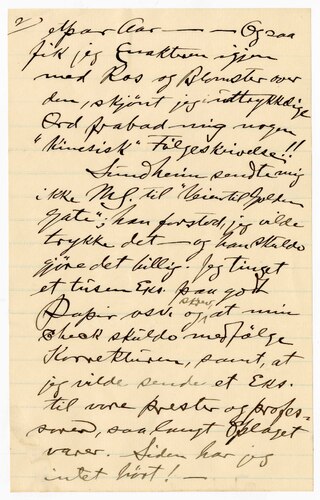 2)
et par Aar — — Og saa
fik jeg Enakteren igjen
med Ros og Blomster over
den, skjönt jeg i uttrykkelige
Ord frabad mig nogen
"kinesisk" Følgeskrivelse!!
Sundheim sendte mig
ikke M.S. til "Veien til Golden
Gate"; han forstod, jeg vilde
trykke det — og han skulde
gjöre det billig. Jeg tinget
et tusen Eks. paa godt
Papir osv. og at min
check skulde medfølge
Korrekturen, samt, at
jeg vilde sende et Eks.
til vore prester og profes-
sorer, saa langt Oplaget
varer. Siden har jeg
intet hört! —